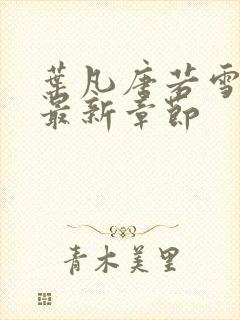 葉凡唐若雪
最新章節
青木美里